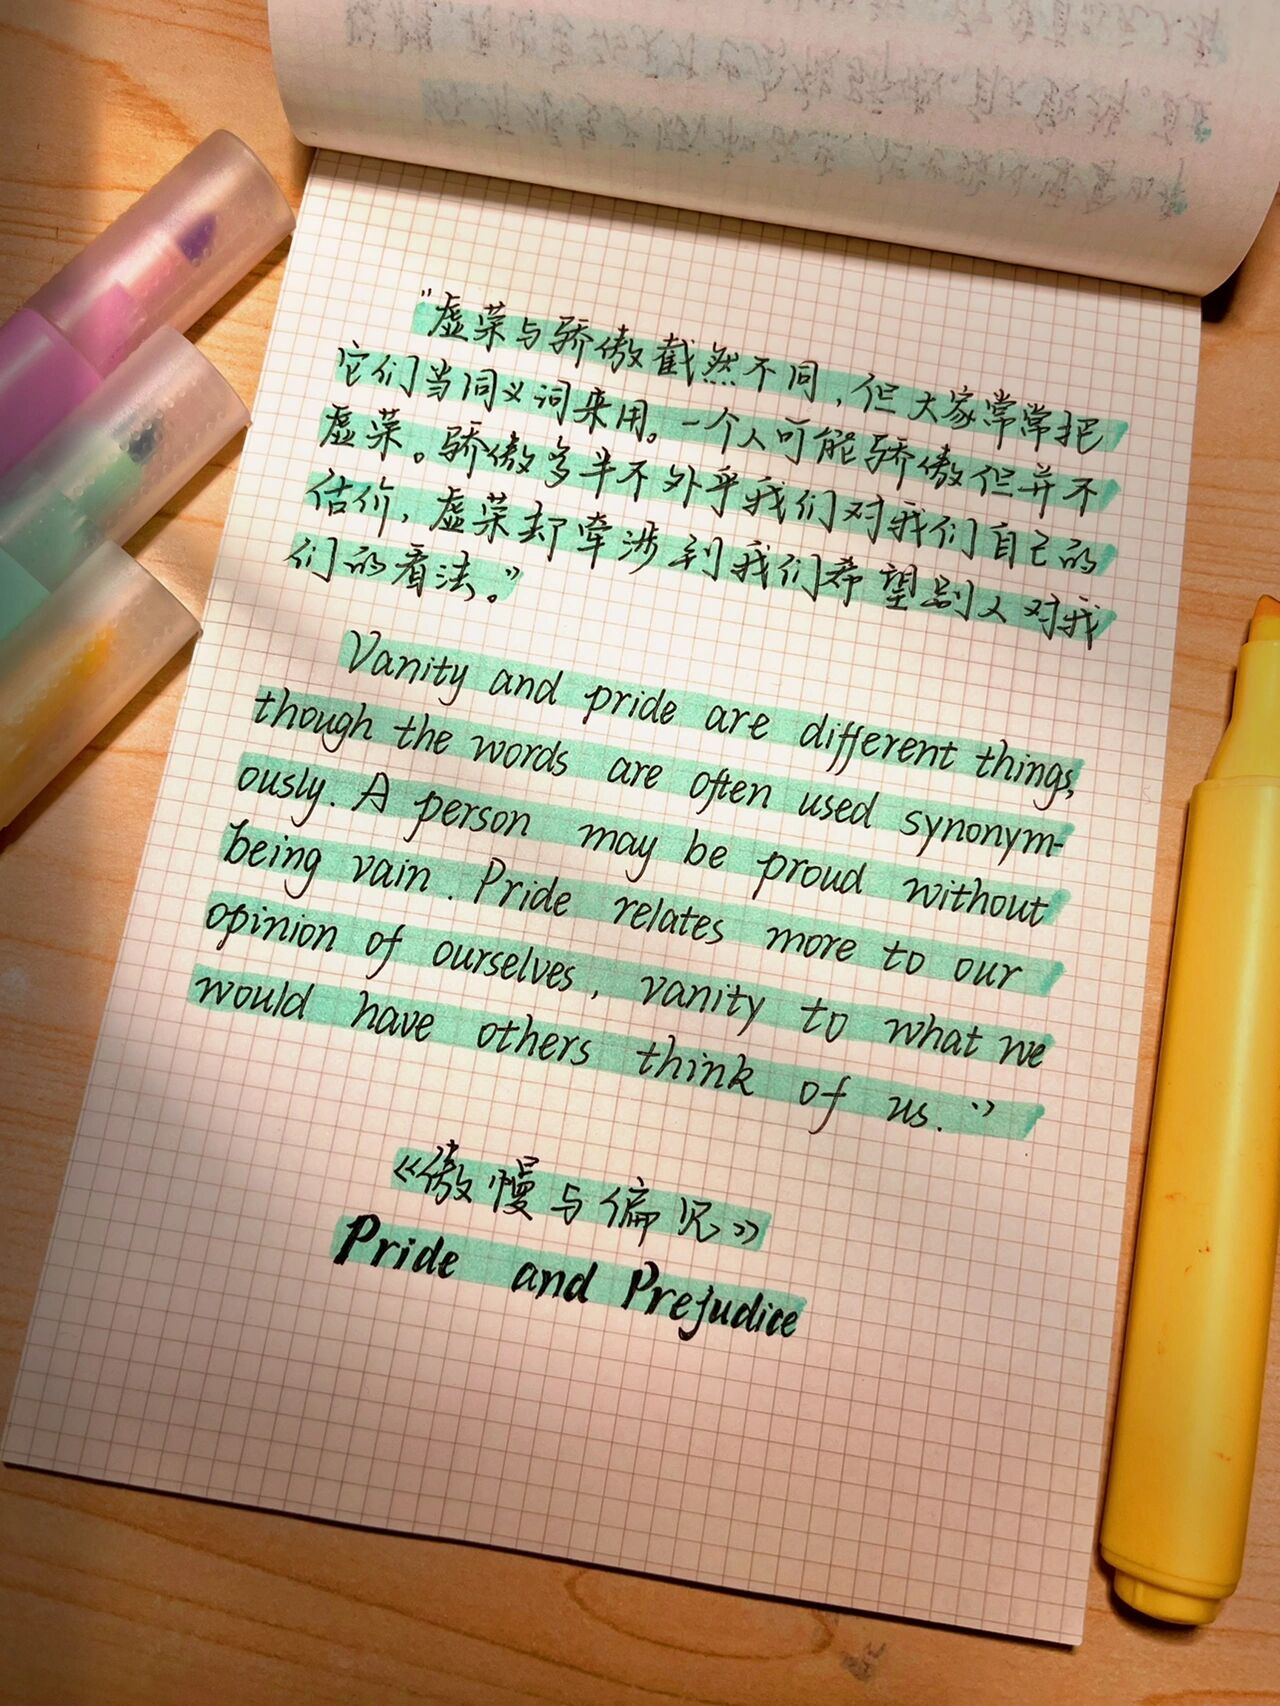 “虚荣与骄傲截然不同，但大家常常把
它们当同义词来用。一个人可能骄傲但并不
虚荣。骄傲多半不外乎我们对我们自己的
估价，虚荣却牵涉到我们希望别人对我
们的看法。”
Vanity and pride are different things,
though the words are often used synonym-
ously. A person may be proud without
being vain. Pride relates more to our
opinion of ourselves, vanity to what we
would have others think of us.”
《傲慢与偏见》
Pride and Prejudice